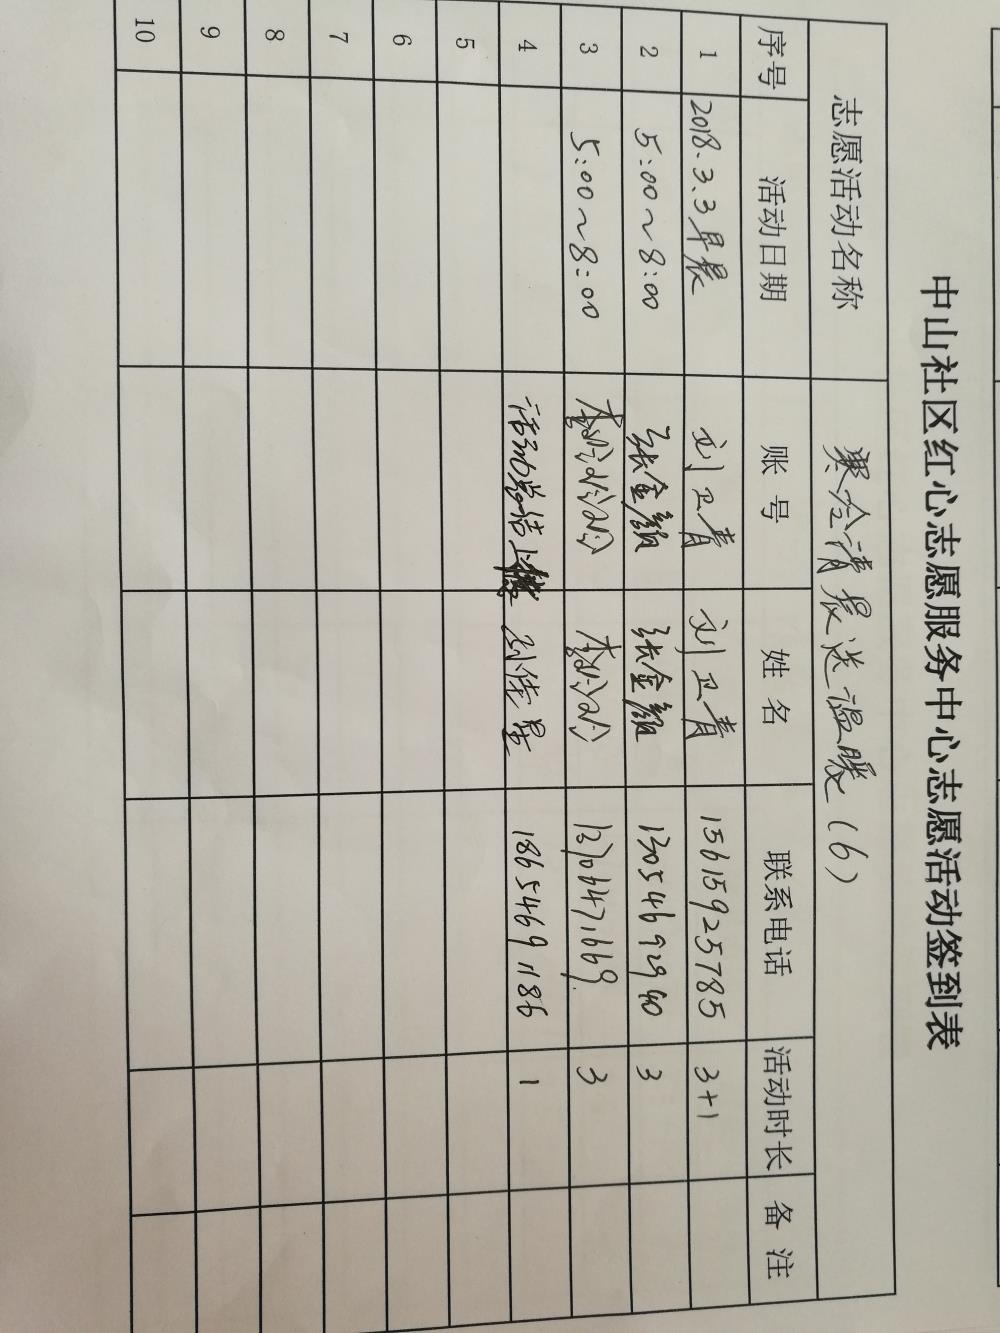 中山社区红心志愿服务中心志愿活动签到表
志愿活动名称 寒冷清晨送温暖（6）
序号 活动日期 账号 姓名 联系电话 活动时长 备注
1 2018.3.3早晨 刘卫青 刘卫青 15615925785 3+1
2 5:00~8:00 张金颜 张金颜 13054692940 3
3 5:00~8:00 3
4 活动总结上传 孙佳星 18654691186 1
5
6
7
8
9
10